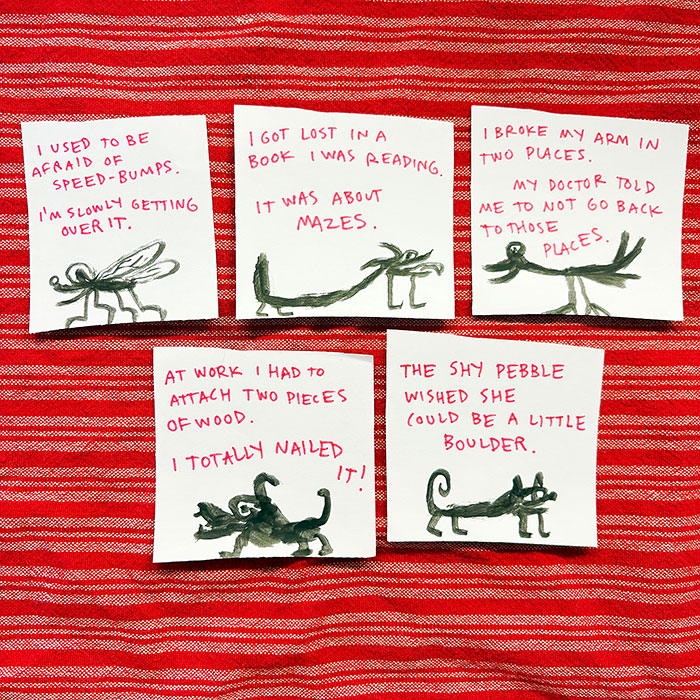 I USED TO BE
AFRAID OF
SPEED-BUMPS.
I'M SLOWLY GETTING
OVER IT.
I GOT LOST IN A
BOOK I WAS READING.
IT WAS ABOUT
MAZES.
I BROKE MY ARM IN
TWO PLACES.
MY DOCTOR TOLD
ME TO NOT GO BACK
TO THOSE
PLACES.
AT WORK I HAD TO
ATTACH TWO PIECES
OF WOOD.
I TOTALLY NAILED
IT!
THE SHY PEBBLE
WISHED SHE
COULD BE A LITTLE
BOULDER.